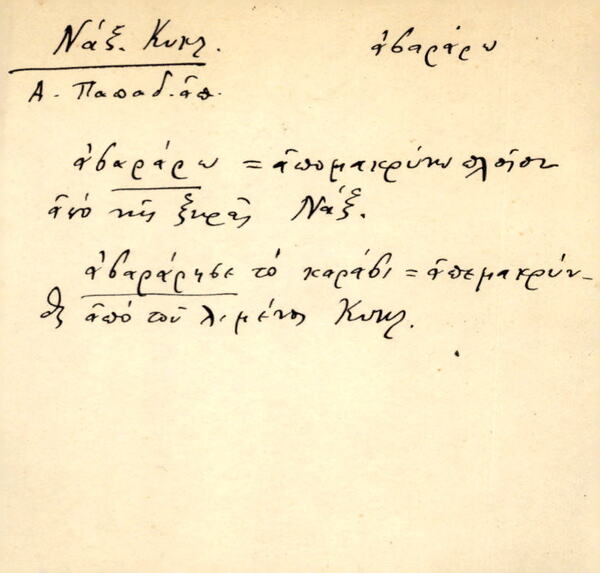 Νάξ. Κυκλ. ἀβαράρω
Α. Παπαδ. ἀπ.
ἀβαράρω = ἀπομακρύνω πλοῖον
ἀπό τῆς ξηρᾶς Νάξ.
ἀβαράρησε τό καράβι = ἀπεμακρύν-
θη ἀπό τοῦ λιμένος Κυκλ.